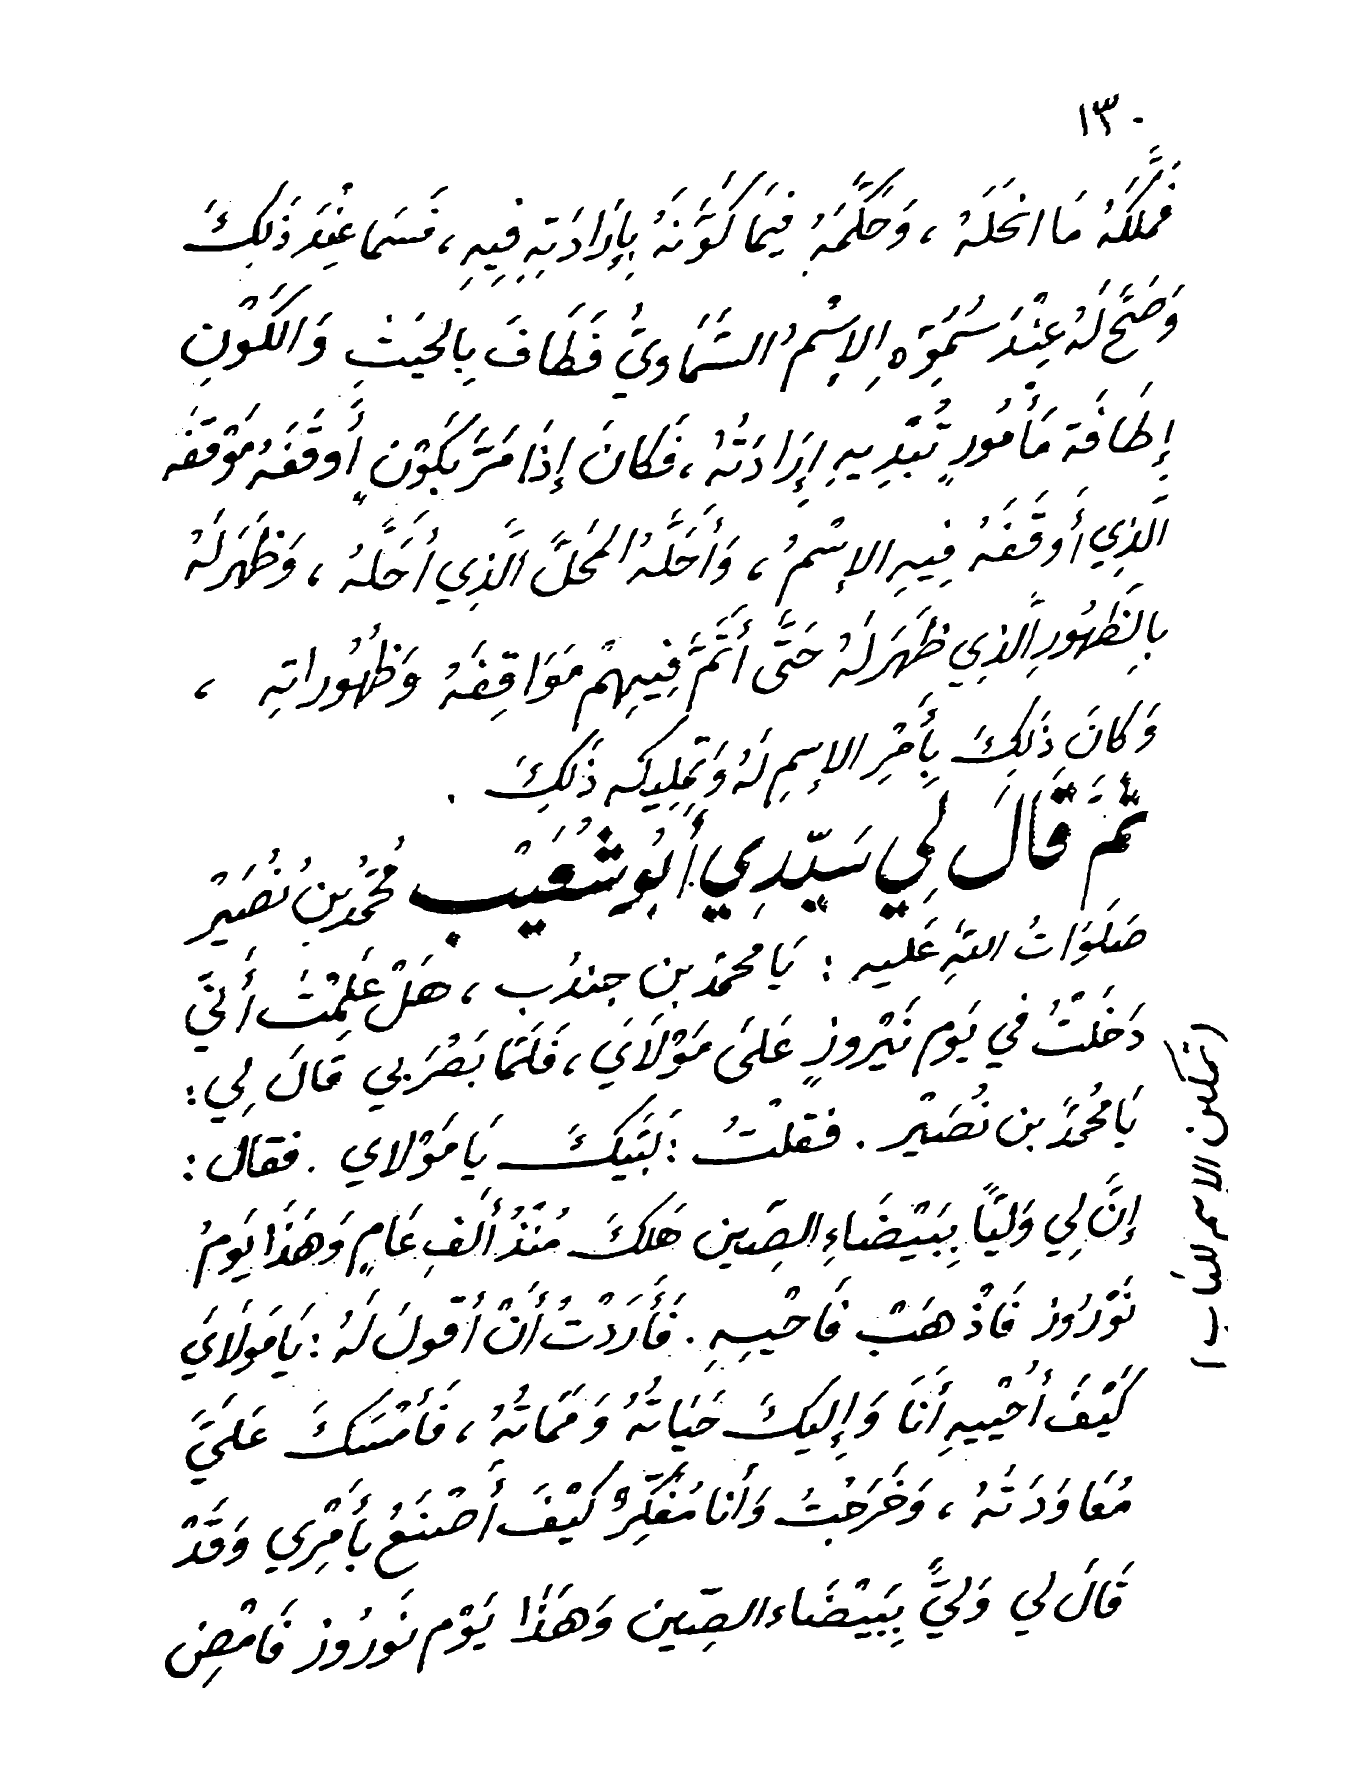 ١٣٠
فَمَلَّكَهُ مَا انحَلَهُ ، وَحَكَّمَهُ فِيمَا كَوَّنَهُ بِإِرَادَتِهِ فِيهِ ، فَسَما عِنْدَ ذَلِكَ
وَصَحَّ لَهُ عِنْدَ سُمُوِّه الإسْمُ السَّمَاوِيُّ فَطَافَ بِالحَيَثِ وَالكَوْنِ
إِطَافَة مَأْمُورٍ تُبْدِيهِ إِرَادَتُهُ ، فَكَانَ إِذَا مَرَّ بِكَوْنٍ أَوقَفَهُ مَوْقَفَه
الَّذِي أَوقَفَهُ فِيهِ الإسْمُ ، وَأَحَلَّهُ المَحَلَّ الَّذِي أَحَلَّهُ ، وَظَهَرَ لَهُ
بِالظُهُورِ الَّذِي ظَهَرَ لَهُ حَتَّى أَتَمَّ فِيهِمْ مَوَاقِفَهُ وَظُهُوراتِهِ ،
وَكَانَ ذَلِكَ بِأَمْرِ الإسمِ لَهُ وَتَمْلِيكِه ذَلِكَ .
ثُمَّ قَالَ لِي سَيِّدِي أَبُو شُعَيْب مُحَمَّدُ بنُ نُصَيْر
صَلَوَاتُ اللهِ عَلَيهِ : يَا محمدُ بن جندُب ، هَلْ عَلِمْتَ أَنِّي
دَخَلْتُ في يَوم نَيْروزٍ عَلَى مَوْلَايَ ، فَلَمَّا بَصُرَ بي قَالَ لِي :
يَا مُحُمَّدُ بن نُصَيْر . فقلْتُ : لَبَّيكَ يَا مَوْلاي . فقال :
إنَّ لِي وَليَّاً بِبَيْضَاءِ الصِّين هَلكَ مُنْذُ أَلفِ عَامٍ وَهَذَا يَومُ
نَوْرُوز فَاذْهَبْ فَاحْيِهِ . فَأَرَدْتُ أَنْ أَقولَ لَهُ : يَا مَولَايَ
كَيْفَ أُحْيِيهِ أَنَا وَإِلَيكَ حَيَاتُهُ وَمَمَاتُهُ ، فَأَمْسَكَ عَلَيَّ
مُعَاوَدَتُهُ ، وَخَرَجْتُ وَأَنا مُفَكِّرٌ كَيْفَ أَصْنَعُ بِأَمْرِي وَقَدْ
قَالَ لي وَليَّ بِبَيْضَاء الصِّين وَهَذَا يَوْم نَورُوز فَامْضِ
(تمكين الاسم للباب)